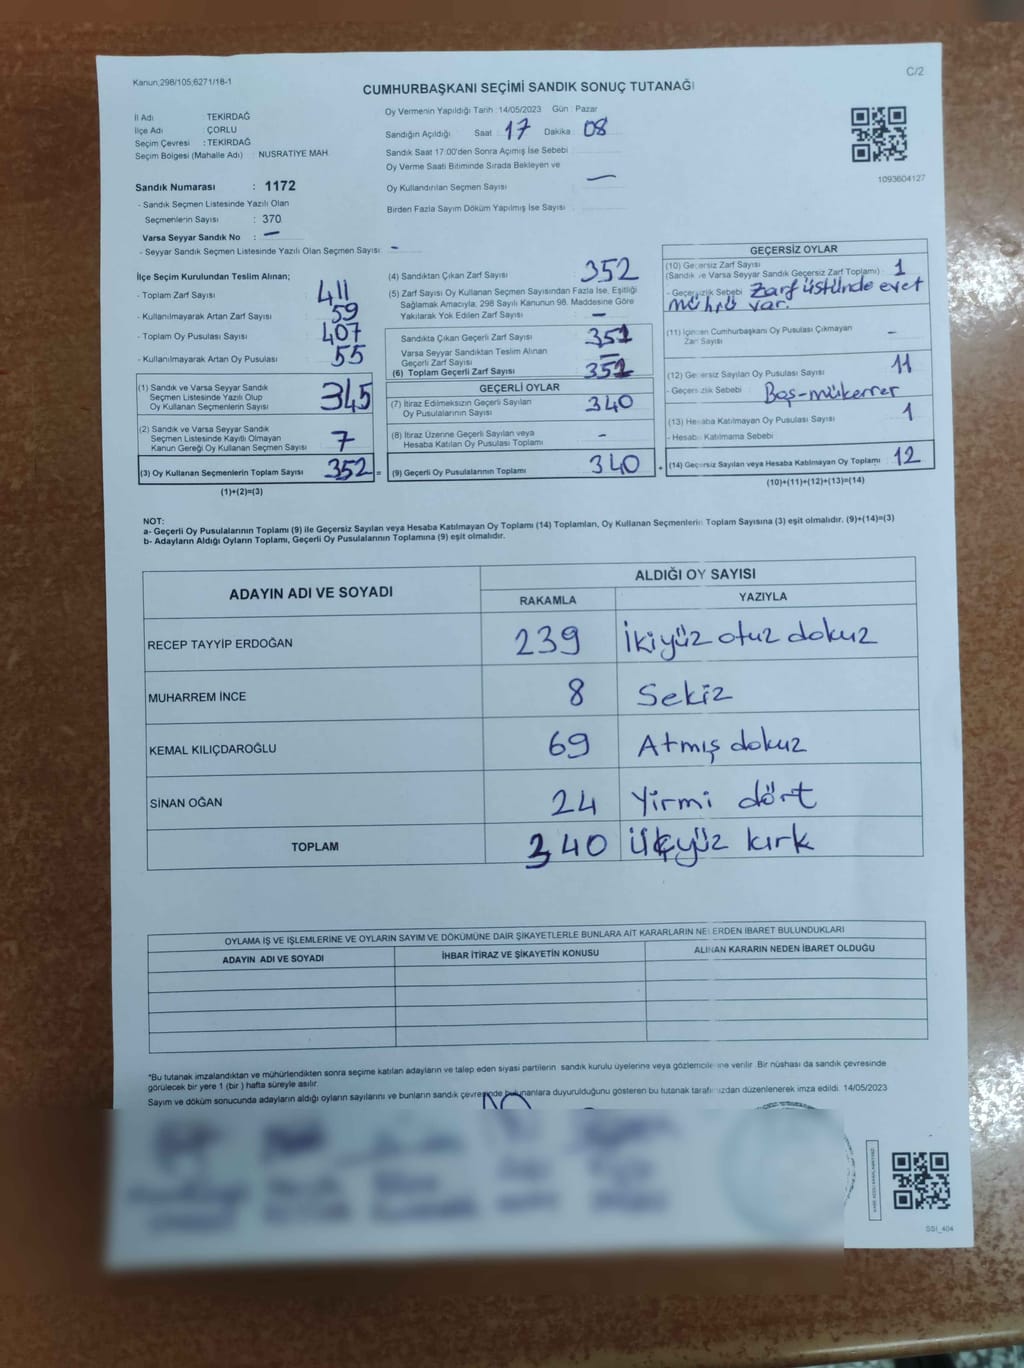 Kanun;298/105;6271/18-1
C/2
CUMHURBAŞKANI SEÇİMİ SANDIK SONUÇ TUTANAĞI
İl Adı TEKİRDAĞ
İlçe Adı ÇORLU
Seçim Çevresi : TEKİRDAĞ
Seçim Bölgesi (Mahalle Adı) : NUSRATİYE MAH.
Sandık Numarası : 1172
- Sandık Seçmen Listesinde Yazılı Olan
Seçmenlerin Sayısı : 370
Varsa Seyyar Sandık No : —
- Seyyar Sandık Seçmen Listesinde Yazılı Olan Seçmen Sayısı: -
Oy Vermenin Yapıldığı Tarih : 14/05/2023 Gün : Pazar
Sandığın Açıldığı Saat : 17 Dakika : 08
Sandık Saat 17:00'den Sonra Açımış İse Sebebi :
Oy Verme Saati Bitiminde Sırada Bekleyen ve
Oy Kullandırılan Seçmen Sayısı : —
Birden Fazla Sayım Döküm Yapılmış İse Sayısı :
1093604127
İlçe Seçim Kurulundan Teslim Alınan;
- Toplam Zarf Sayısı : 411
- Kullanılmayarak Artan Zarf Sayısı : 59
- Toplam Oy Pusulası Sayısı : 407
- Kullanılmayarak Artan Oy Pusulası : 55
(1) Sandık ve Varsa Seyyar Sandık
Seçmen Listesinde Yazılı Olup
Oy Kullanan Seçmenlerin Sayısı : 345
(2) Sandık ve Varsa Seyyar Sandık
Seçmen Listesinde Kayıtlı Olmayan
Kanun Gereği Oy Kullanan Seçmen Sayısı : 7
(3) Oy Kullanan Seçmenlerin Toplam Sayısı : 352 =
(1)+(2)=(3)
(4) Sandıktan Çıkan Zarf Sayısı : 352
(5) Zarf Sayısı Oy Kullanan Seçmen Sayısından Fazla İse, Eşitliği
Sağlamak Amacıyla, 298 Sayılı Kanunun 98. Maddesine Göre
Yakılarak Yok Edilen Zarf Sayısı : —
Sandıkta Çıkan Geçerli Zarf Sayısı : 351
Varsa Seyyar Sandıktan Teslim Alınan
Geçerli Zarf Sayısı : —
(6) Toplam Geçerli Zarf Sayısı : 351
GEÇERLİ OYLAR
(7) İtiraz Edilmeksizin Geçerli Sayılan
Oy Pusulalarının Sayısı : 340
(8) İtiraz Üzerine Geçerli Sayılan veya
Hesaba Katılan Oy Pusulası Toplamı : -
(9) Geçerli Oy Pusulalarının Toplamı : 340 +
GEÇERSİZ OYLAR
(10) Geçersiz Zarf Sayısı
(Sandık ve Varsa Seyyar Sandık Geçersiz Zarf Toplamı) : 1
- Geçersizlik Sebebi : Zarf üstünde evet
mührü var.
(11) İçinden Cumhurbaşkanı Oy Pusulası Çıkmayan
Zarf Sayısı : -
(12) Geçersiz Sayılan Oy Pusulası Sayısı : 11
- Geçersizlik Sebebi : Boş-mükerrer
(13) Hesaba Katılmayan Oy Pusulası Sayısı : 1
- Hesaba Katılmama Sebebi
(14) Geçersiz Sayılan veya Hesaba Katılmayan Oy Toplamı : 12
(10)+(11)+(12)+(13)=(14)
NOT:
a- Geçerli Oy Pusulalarının Toplamı (9) ile Geçersiz Sayılan veya Hesaba Katılmayan Oy Toplamı (14) Toplamları, Oy Kullanan Seçmenlerin Toplam Sayısına (3) eşit olmalıdır. (9)+(14)=(3)
b- Adayların Aldığı Oyların Toplamı, Geçerli Oy Pusulalarının Toplamına (9) eşit olmalıdır.
ADAYIN ADI VE SOYADI
ALDIĞI OY SAYISI
RAKAMLA YAZIYLA
RECEP TAYYİP ERDOĞAN 239 İkiyüz otuz dokuz
MUHARREM İNCE 8 Sekiz
KEMAL KILIÇDAROĞLU 69 Atmış dokuz
SİNAN OĞAN 24 Yirmi dört
TOPLAM 340 üçyüz kırk
OYLAMA İŞ VE İŞLEMLERİNE VE OYLARIN SAYIM VE DÖKÜMÜNE DAİR ŞİKAYETLERLE BUNLARA AİT KARARLARIN NELERDEN İBARET BULUNDUKLARI
ADAYIN ADI VE SOYADI İHBAR İTİRAZ VE ŞİKAYETİN KONUSU ALINAN KARARIN NEDEN İBARET OLDUĞU
*Bu tutanak imzalandıktan ve mühürlendikten sonra seçime katılan adayların ve talep eden siyasi partilerin sandık kurulu üyelerine veya gözlemcilerine verilir. Bir nüshası da sandık çevresinde
görülecek bir yere 1 (bir ) hafta süreyle asılır.
Sayım ve döküm sonucunda adayların aldığı oyların sayılarını ve bunların sandık çevresinde bulunanlara duyurulduğunu gösteren bu tutanak tarafımızdan düzenlenerek imza edildi. 14/05/2023
SSI_404